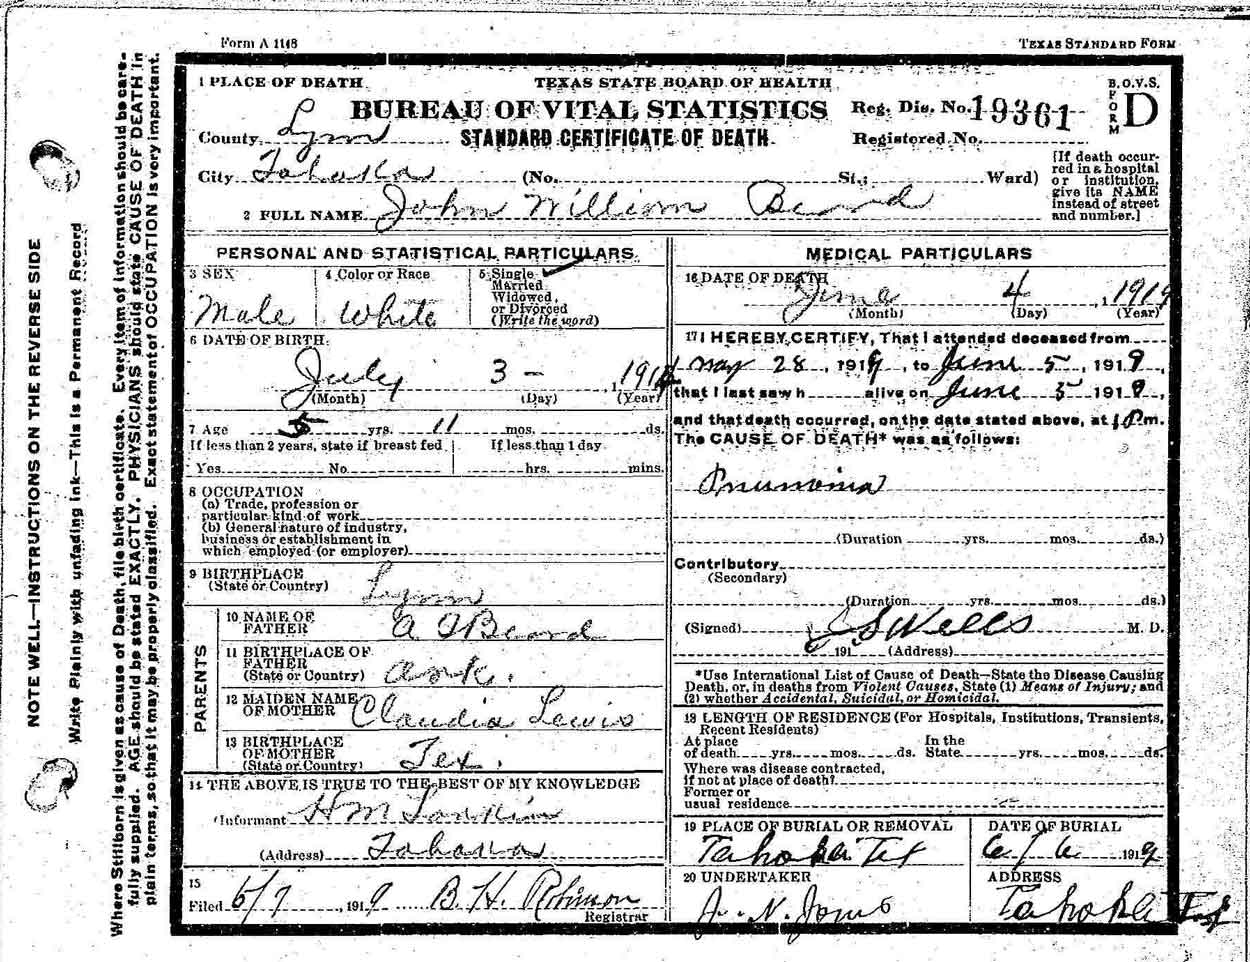 Form A 1148 TEXAS STANDARD FORM
1 PLACE OF DEATH TEXAS STATE BOARD OF HEALTH B.O.V.S.
BUREAU OF VITAL STATISTICS Reg. Dis. No. 19361 FORM D
County Lynn STANDARD CERTIFICATE OF DEATH Registered No.
City Tahoka (No. St.; Ward)
[If death occurred in a hospital or institution, give its NAME instead of street and number.]
2 FULL NAME John William Beard
PERSONAL AND STATISTICAL PARTICULARS
3 SEX 4 Color or Race 5 Single
Married
Widowed,
or Divorced
(Write the word)
Male White
6 DATE OF BIRTH
July 3 - , 191
(Month) (Day) (Year)
7 Age 5 yrs. 11 mos. ds.
If less than 2 years, state if breast fed If less than 1 day
Yes No hrs. mins.
8 OCCUPATION
(a) Trade, profession or
particular kind of work
(b) General nature of industry,
business or establishment in
which employed (or employer)
9 BIRTHPLACE
(State or Country) Lynn
PARENTS
10 NAME OF
FATHER A Beard
11 BIRTHPLACE OF
FATHER
(State or Country) Ark.
12 MAIDEN NAME
OF MOTHER Claudia Lewis
13 BIRTHPLACE
OF MOTHER
(State or Country) Tex.
14 THE ABOVE IS TRUE TO THE BEST OF MY KNOWLEDGE
(Informant H M
(Address) Tahoka
15
Filed 6/7, 1919 B. H. Robinson
Registrar
MEDICAL PARTICULARS
16 DATE OF DEATH
June 4, 1919
(Month) (Day) (Year)
17 I HEREBY CERTIFY, That I attended deceased from
May 28, 1919, to June 5, 1919,
that I last saw h alive on June 5 1919,
and that death occurred, on the date stated above, at 1 P.m.
The CAUSE OF DEATH* was as follows:
Pnumonia
(Duration yrs. mos. ds.)
Contributory
(Secondary)
(Duration yrs. mos. ds.)
(Signed) Wells M. D.
191 (Address)
*Use International List of Cause of Death—State the Disease Causing
Death, or, in deaths from Violent Causes, State (1) Means of Injury; and
(2) whether Accidental, Suicidal, or Homicidal.
18 LENGTH OF RESIDENCE (For Hospitals, Institutions, Transients,
Recent Residents)
At place In the
of death yrs. mos. ds. State yrs. mos. ds.
Where was disease contracted,
if not at place of death?
Former or
usual residence
19 PLACE OF BURIAL OR REMOVAL DATE OF BURIAL
Tahoka Tex 6/6 1919
20 UNDERTAKER ADDRESS
J. N. Jones Tahoka Tex
NOTE WELL—INSTRUCTIONS ON THE REVERSE SIDE
Write Plainly with unfading ink—This is a Permanent Record
Where Stillborn is given as cause of Death, file birth certificate. Every item of information should be care-
fully supplied. AGE should be stated EXACTLY. PHYSICIANS should state CAUSE OF DEATH in
plain terms, so that it may be properly classified. Exact statement of OCCUPATION is very important.